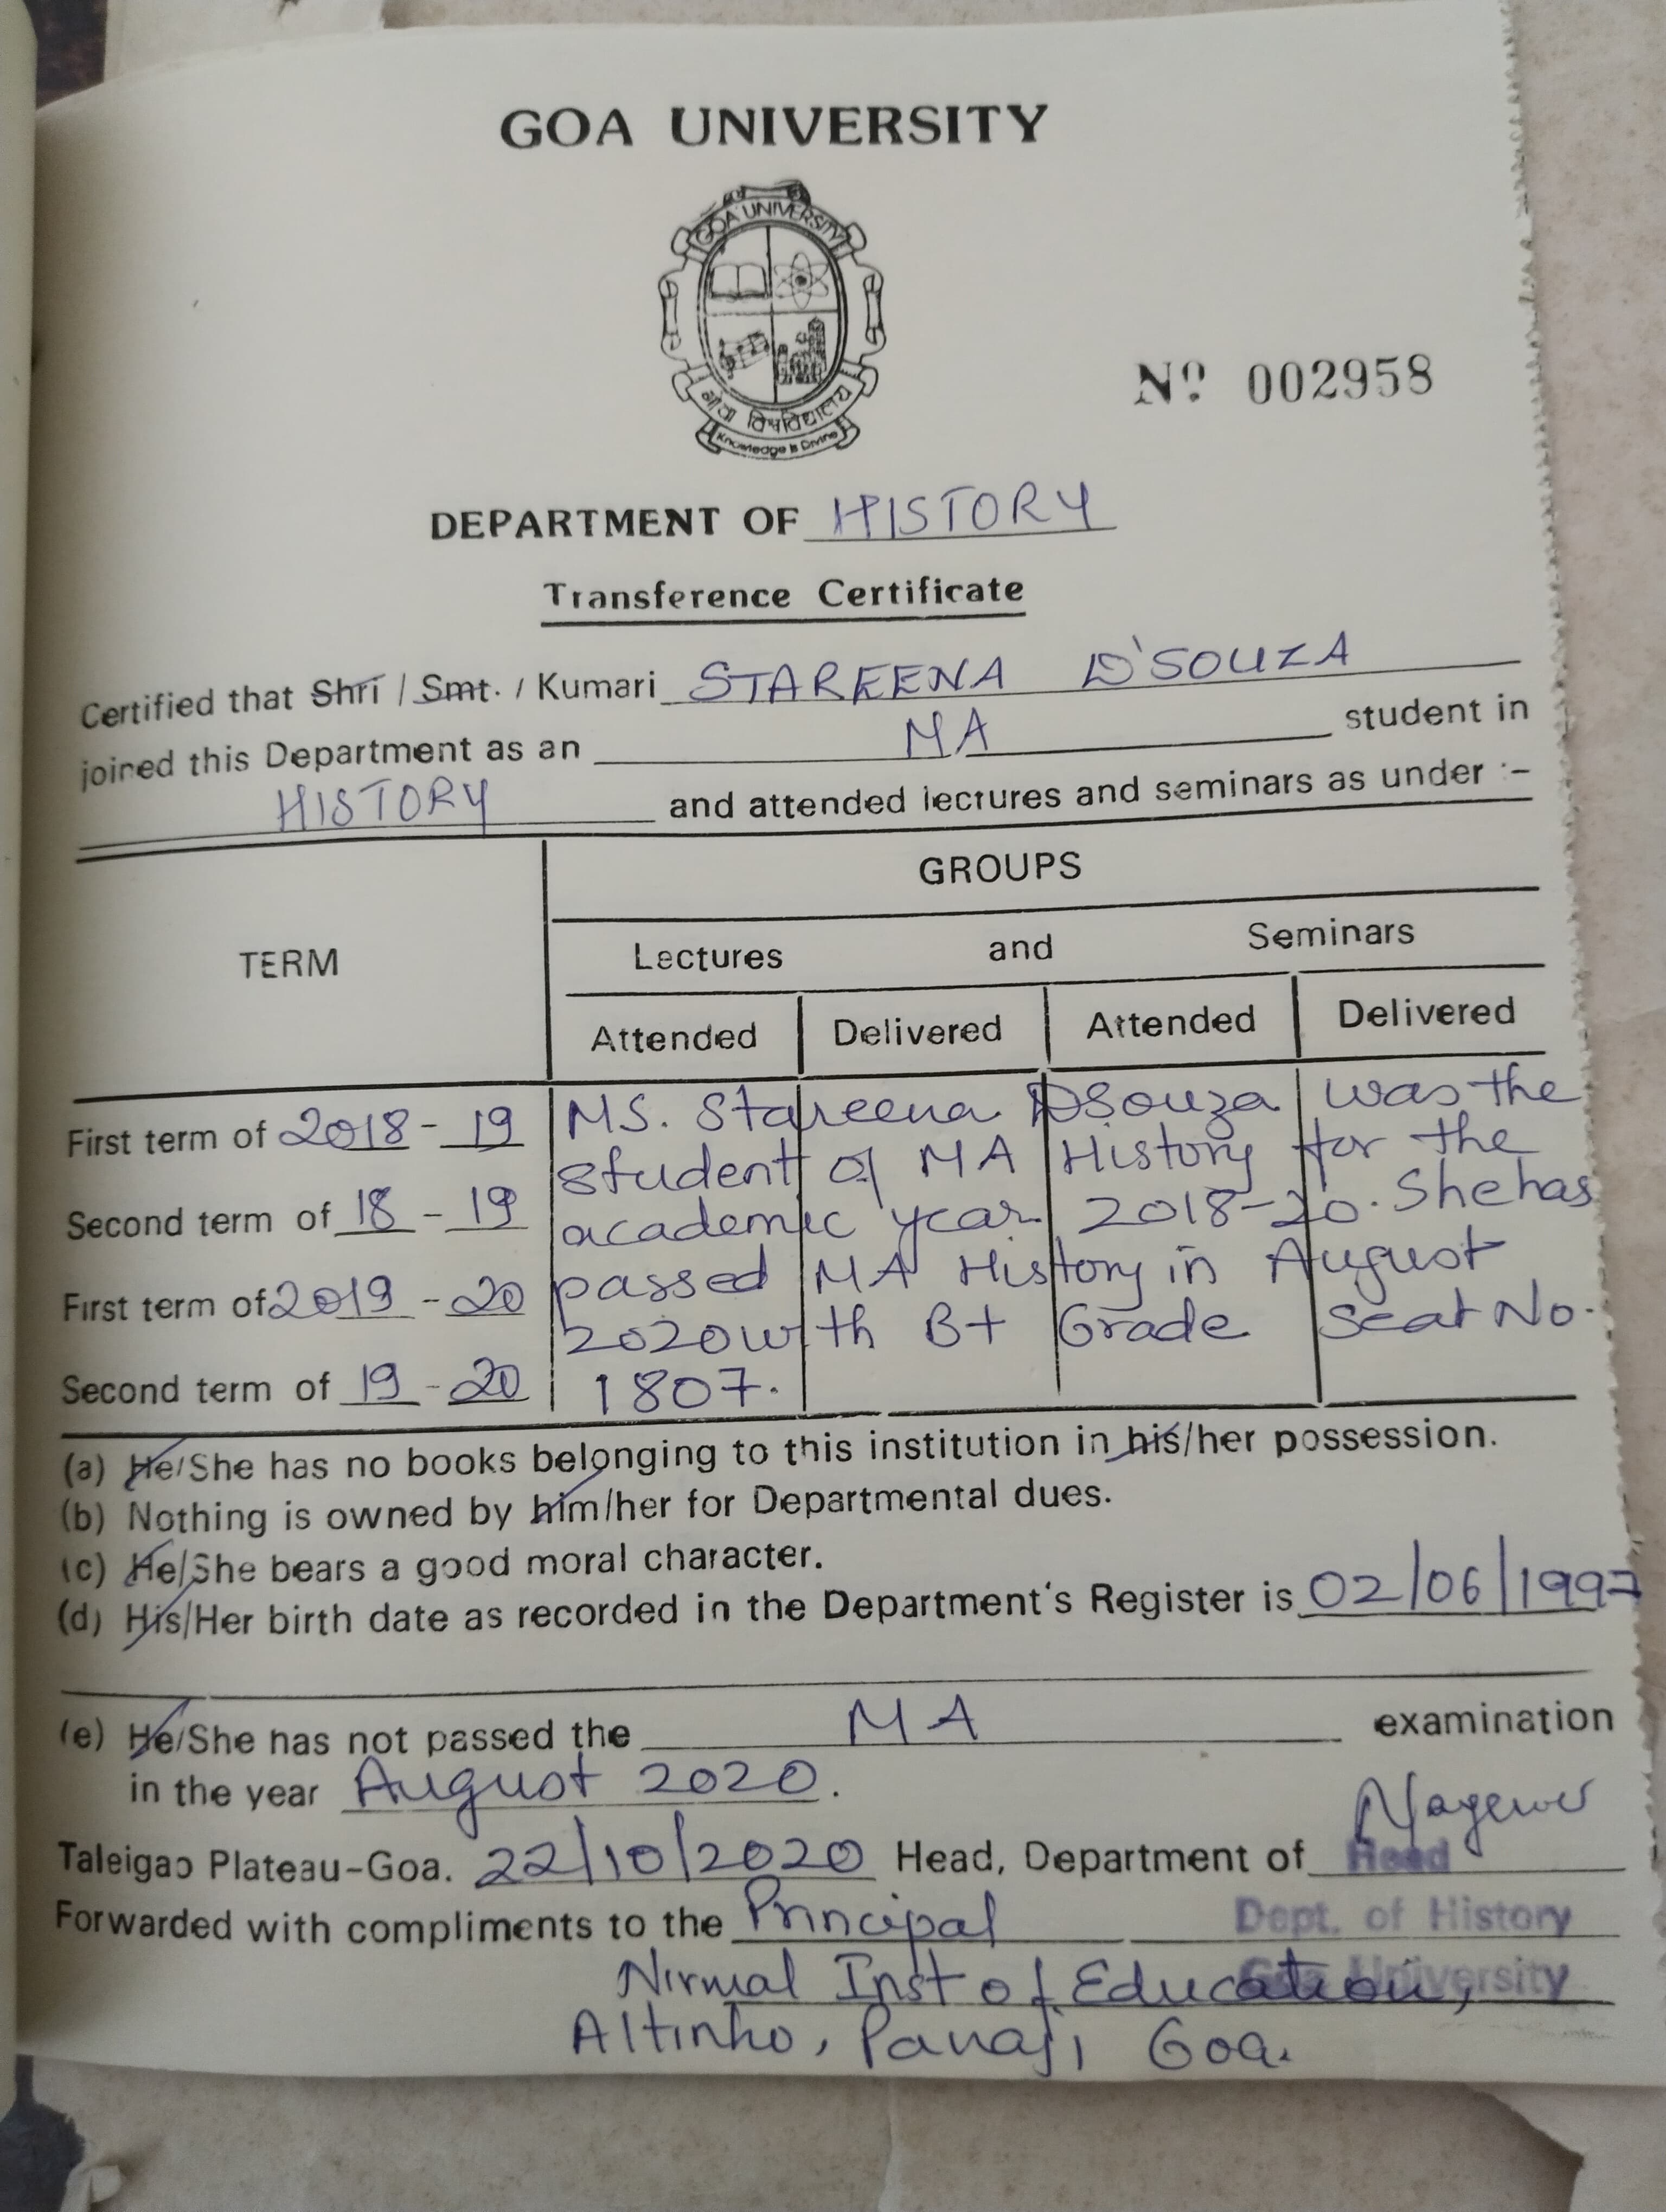 GOA UNIVERSITY
GOA UNIVERSITY
गोवा विश्वविद्यालय
Knowledge is Divine
Nº 002958
DEPARTMENT OF HISTORY
Transference Certificate
Certified that Shri / Smt. / Kumari STAREENA D'SOUZA
joined this Department as an MA student in
HISTORY and attended lectures and seminars as under :-
GROUPS
TERM
Lectures and Seminars
Attended Delivered Attended Delivered
First term of 2018 - 19 MS. Stareena Dsouza was the
student of MA History for the
Second term of 18 - 19 academic year 2018-20. She has
First term of 2019 - 20 passed MA History in August
2020 with B+ Grade Seat No.
Second term of 19 - 20 1807.
(a) He/She has no books belonging to this institution in his/her possession.
(b) Nothing is owned by him/her for Departmental dues.
(c) He/She bears a good moral character.
(d) His/Her birth date as recorded in the Department's Register is 02/06/1997
(e) He/She has not passed the MA examination
in the year August 2020.
Taleigao Plateau-Goa. 22/10/2020 Head, Department of Head
Forwarded with compliments to the Principal Dept. of History
Nirmal Inst of Education, Goa University
Altinho, Panaji Goa.